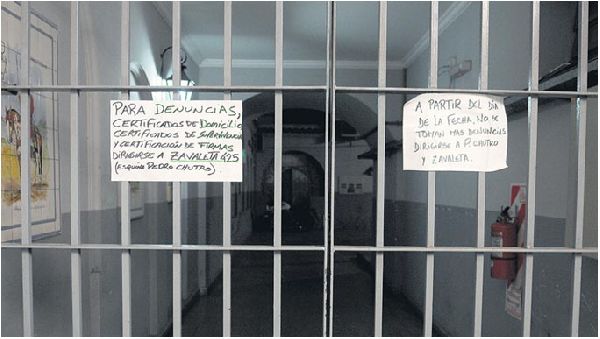 PARA DENUNCIAS,
CERTIFICADOS DE DOMICILIO
CERTIFICADOS DE SUPERVIVENCIA
Y CERTIFICACIÓN DE FIRMAS
DIRIGIRSE A ZAVALETA 425
(ESQUINA PEDRO CHUTRO).
A PARTIR DEL DÍA
DE LA FECHA, NO SE
TOMAN MAS DENUNCIAS
DIRIGIRSE A P. CHUTRO
Y ZAVALETA.